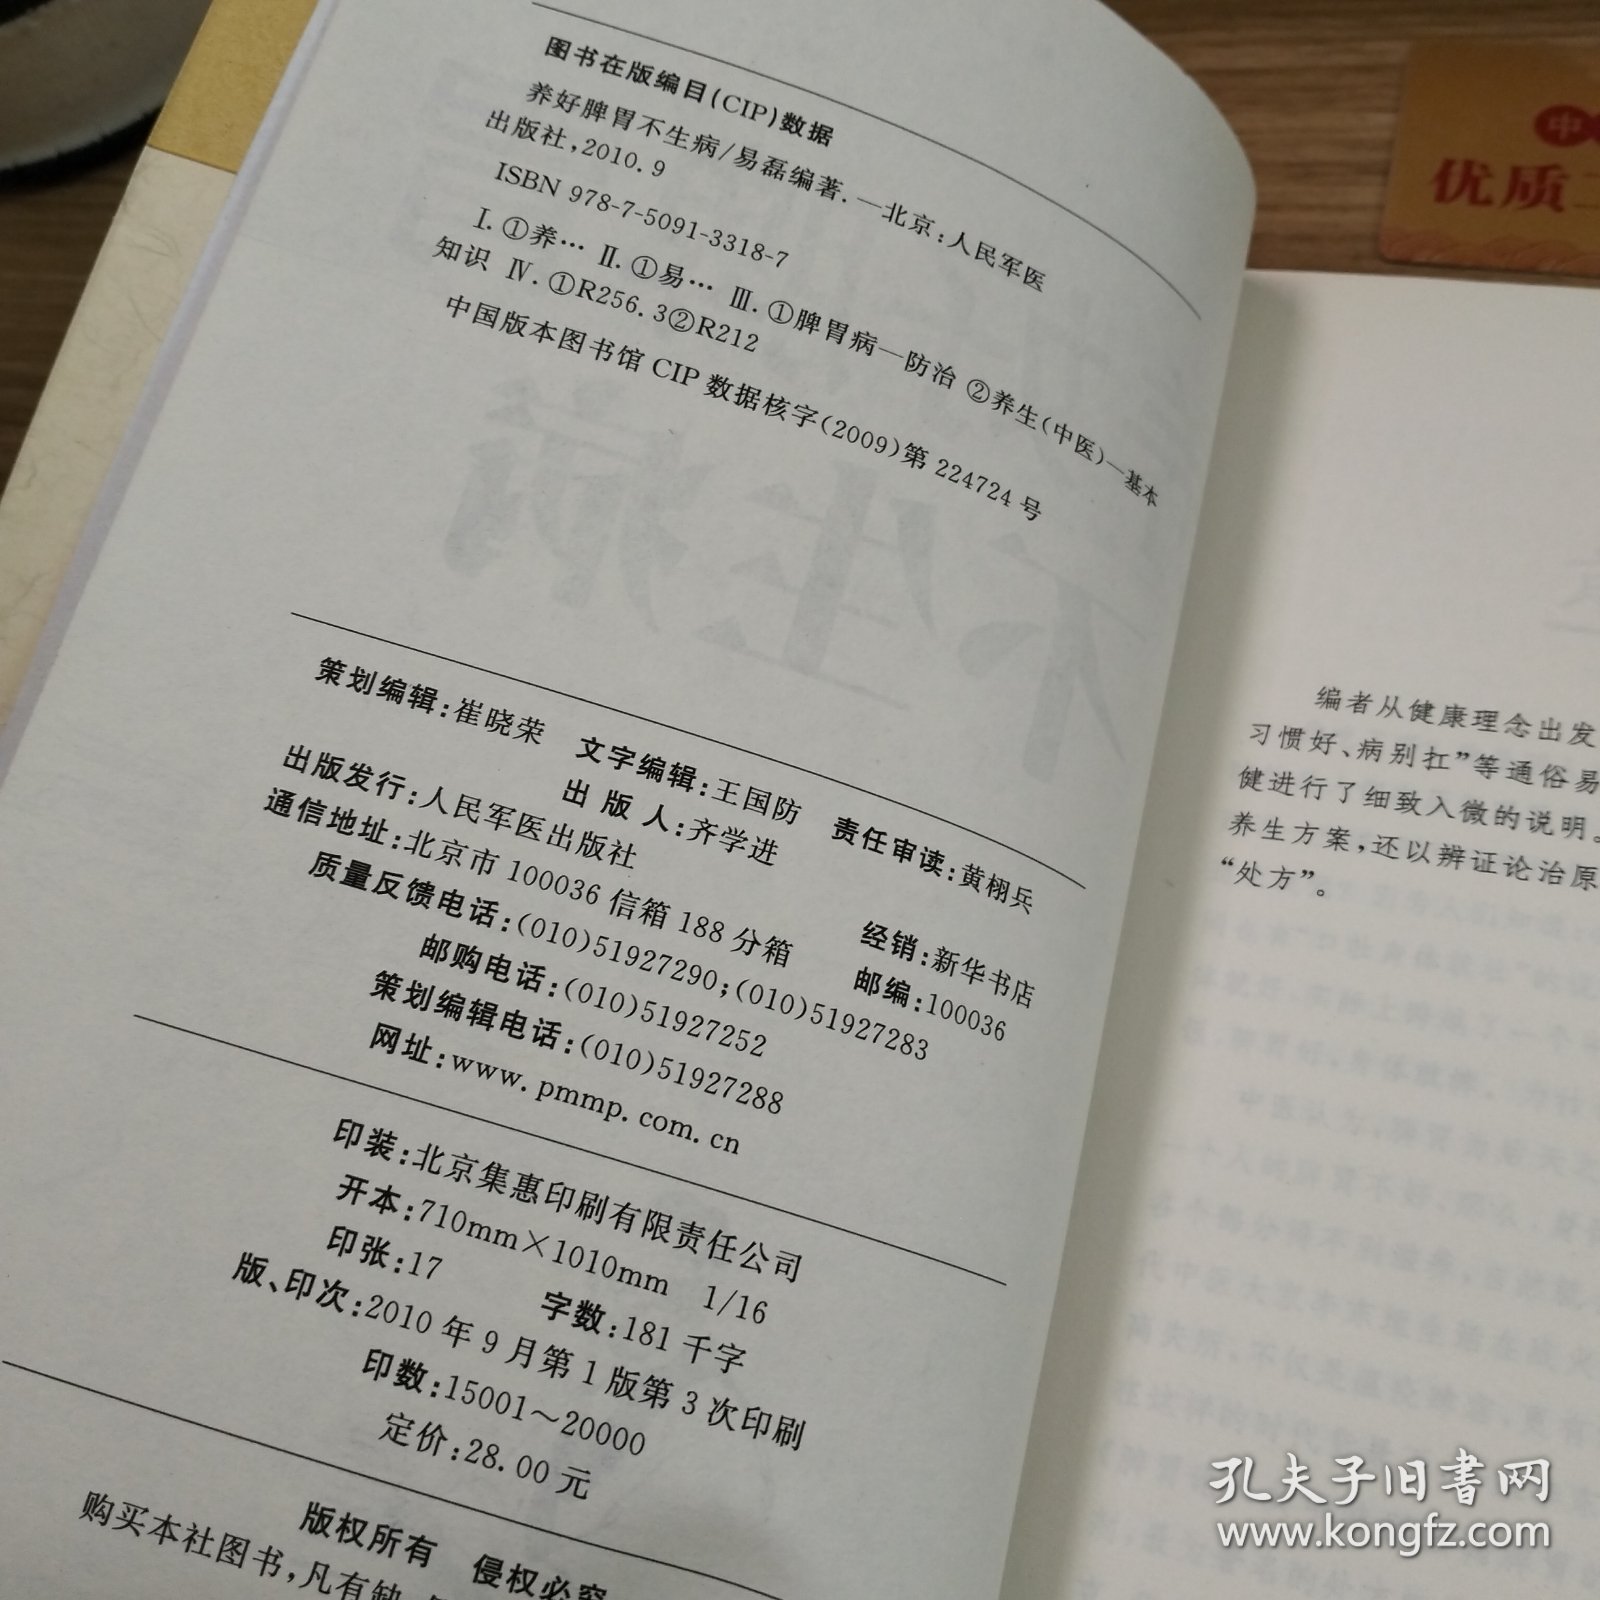 图书在版编目(CIP)数据
养好脾胃不生病/易磊编著.—北京:人民军医
出版社,2010.9
ISBN 978-7-5091-3318-7
Ⅰ.①养… Ⅱ.①易… Ⅲ.①脾胃病—防治 ②养生(中医)—基本
知识 Ⅳ.①R256.3②R212
中国版本图书馆 CIP 数据核字(2009)第 224724 号
策划编辑:崔晓荣 文字编辑:王国防 责任审读:黄栩兵
出版发行:人民军医出版社 出 版 人:齐学进 经销:新华书店
通信地址:北京市 100036 信箱 188 分箱 邮编:100036
质量反馈电话:(010)51927290;(010)51927283
邮购电话:(010)51927252
策划编辑电话:(010)51927288
网址:www.pmmp.com.cn
印装:北京集惠印刷有限责任公司
开本:710mm×1010mm 1/16
印张:17 字数:181 千字
版、印次:2010 年 9 月第 1 版第 3 次印刷
印数:15001～20000
定价:28.00 元
版权所有 侵权必究
购买本社图书,凡有缺
编者从健康理念出发
习惯好、病别扛”等通俗易
健进行了细致入微的说明。
养生方案,还以辨证论治原
“处方”。
中
优质
孔夫子旧书网
www.kongfz.com